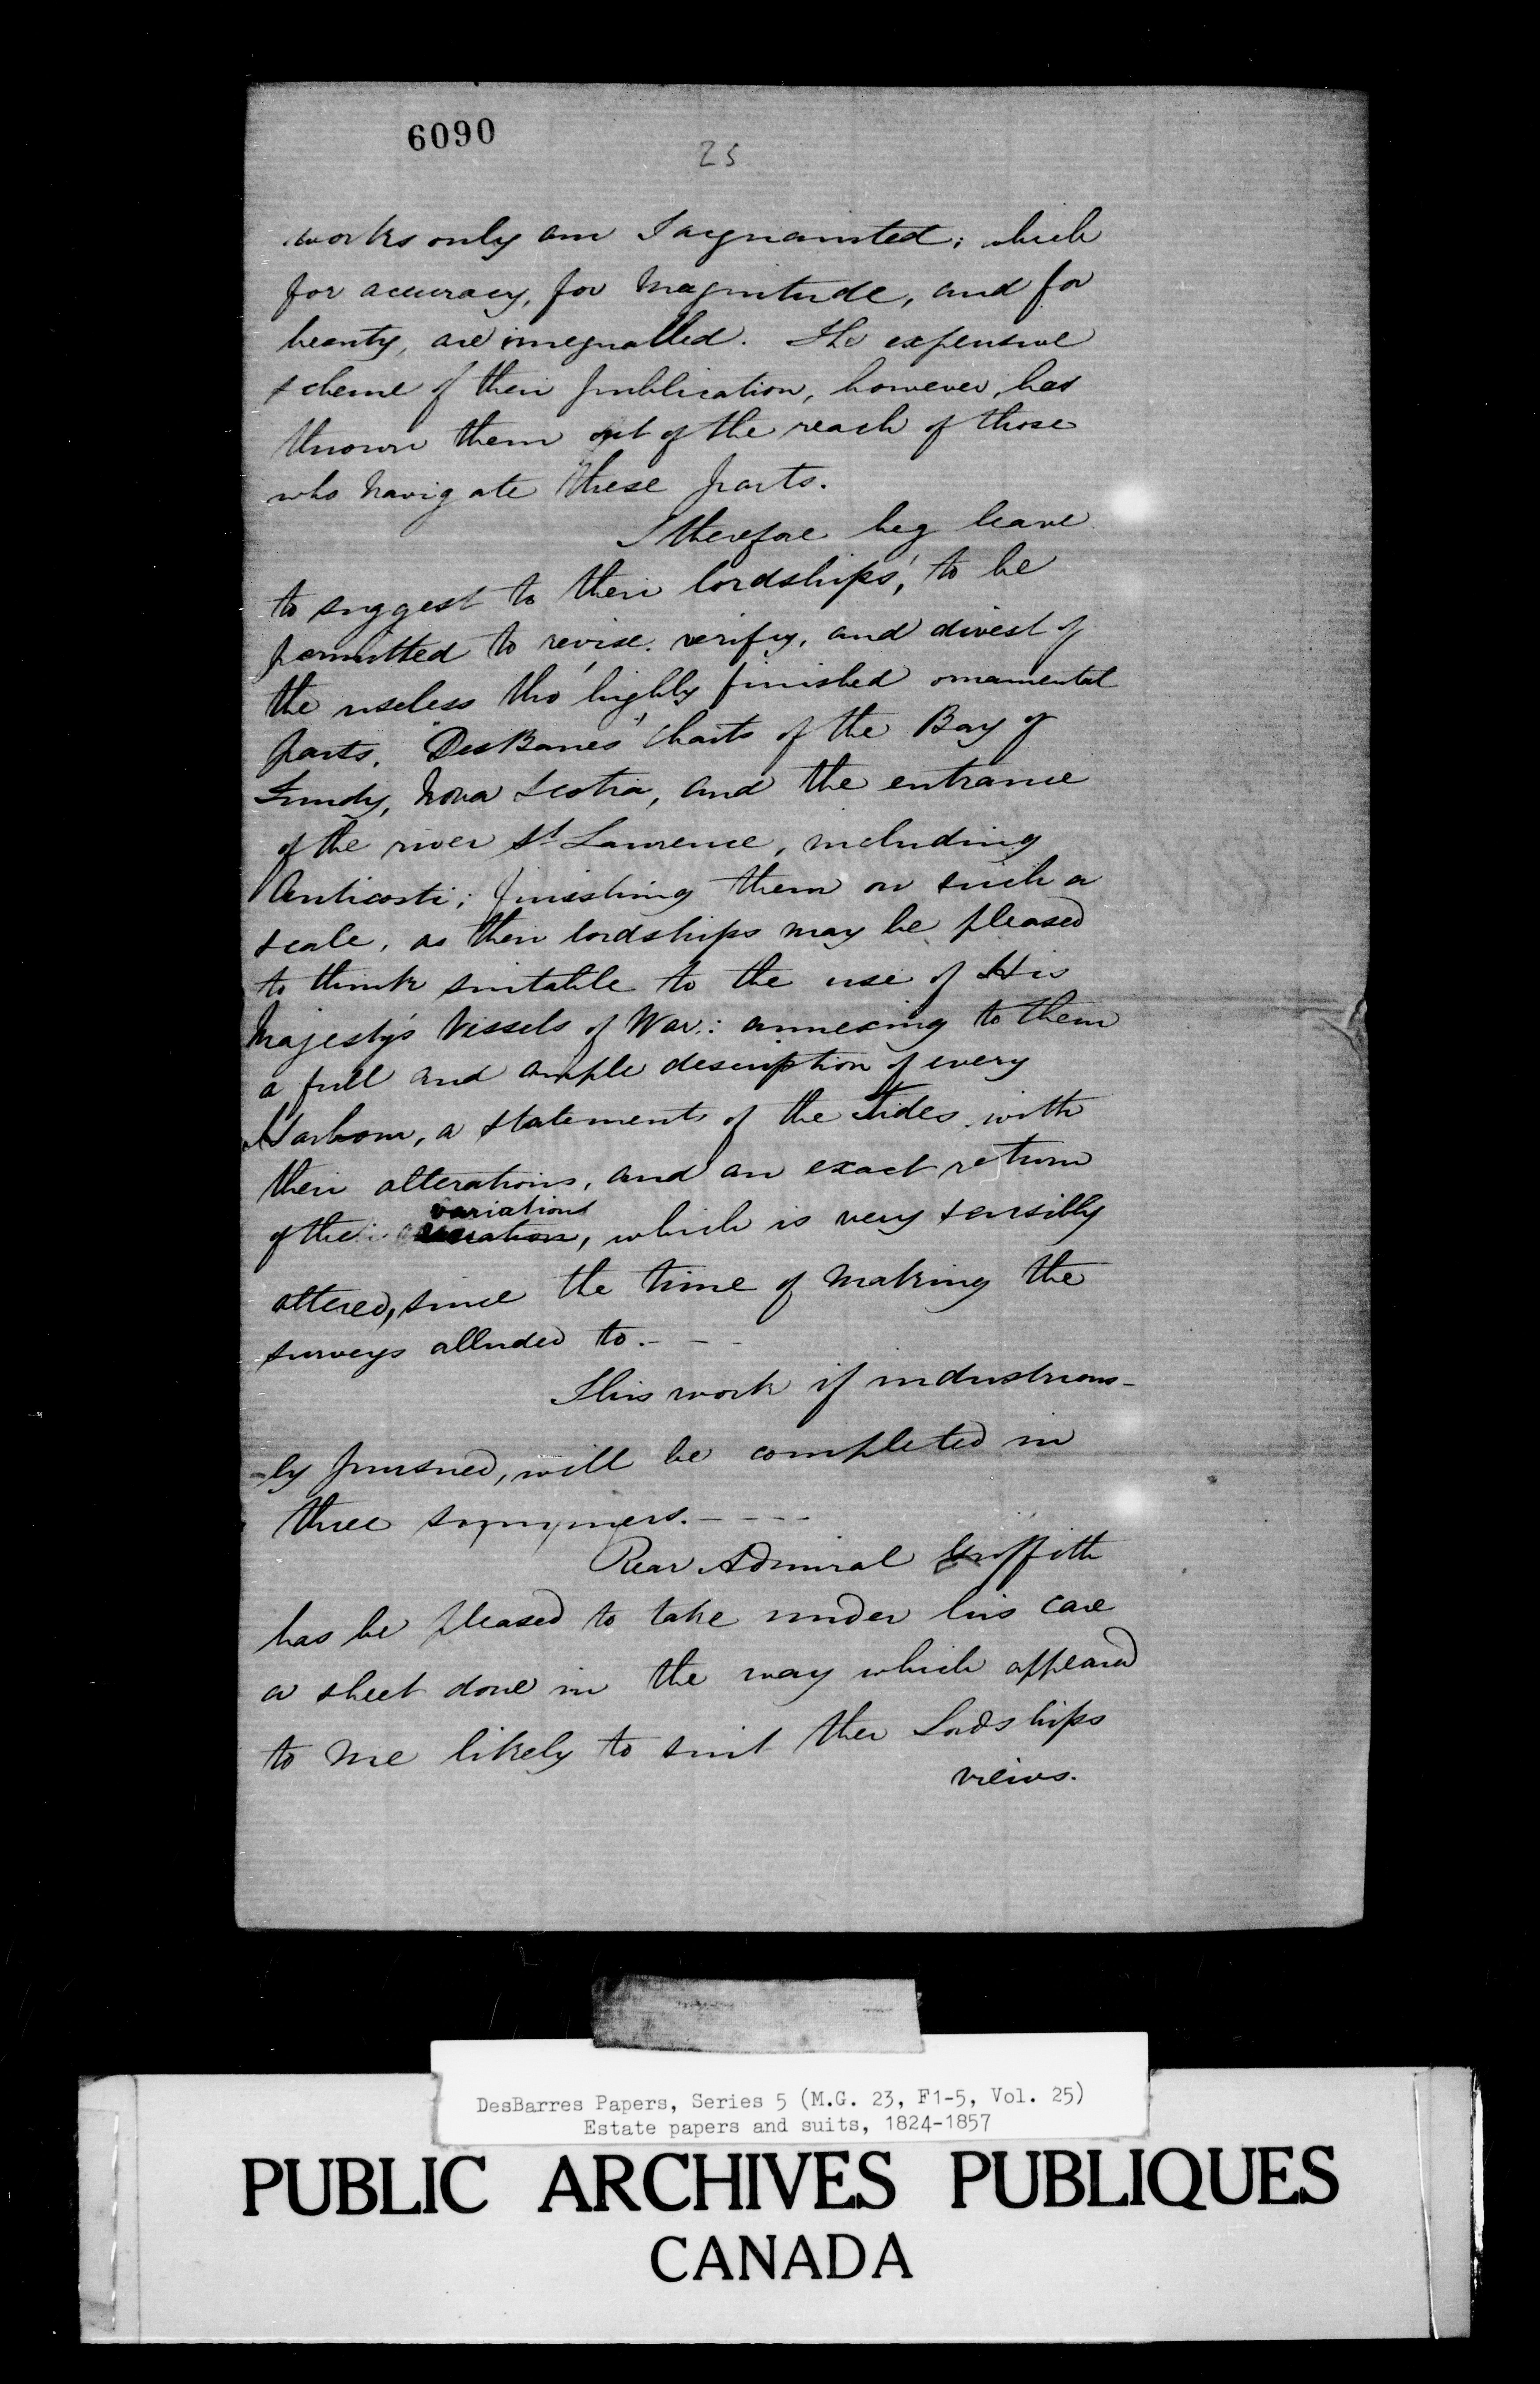 6090
25
works only am I acquainted; which
for accuracy, for magnitude, and for
beauty, are unequalled. The expensive
scheme of their publication, however, has
thrown them out of the reach of those
who navigate these parts.
I therefore beg leave
to suggest to their lordships', to be
permitted to revise. verify, and divest of
the useless tho' highly finished ornamental
parts, "DesBarres" Charts of the Bay of
Fundy, Nova Scotia, and the entrance
of the river St Lawrence, including
Anticosti; finishing them on such a
scale, as their lordships may be pleased
to think suitable to the use of His
Majesty's Vessels of War: annexing to them
a full and ample description of every
Harbour, a statement of the Tides with
their alterations, and an exact return
variations
of the, which is very sensibly
altered, since the time of making the
surveys alluded to. - - -
This work if industrious-
-ly pursued, will be completed in
three summers. - - - -
Rear Admiral Griffith
has be pleased to take under his care
a sheet done in the way which appeared
to me likely to suit their Lordships
views.
DesBarres Papers, Series 5 (M.G. 23, F1-5, Vol. 25)
Estate papers and suits, 1824-1857
PUBLIC ARCHIVES PUBLIQUES
CANADA